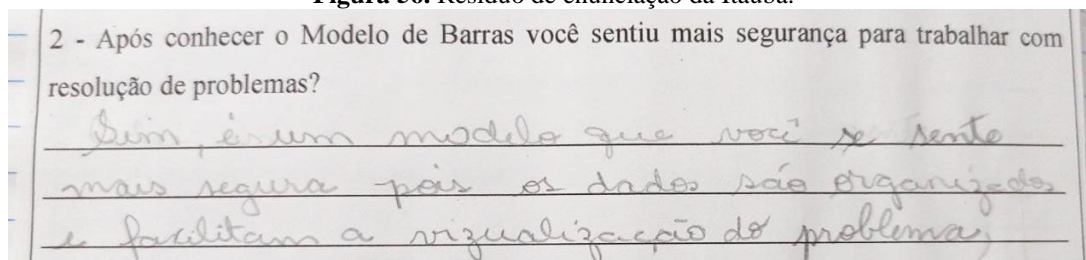 Figura 30. Resíduo de enunciação da Itaúba.
2 - Após conhecer o Modelo de Barras você sentiu mais segurança para trabalhar com
resolução de problemas?
Sim, é um modelo que você se sente
mais segura pois os dados são organizados
e facilitam a vizualização do problema,